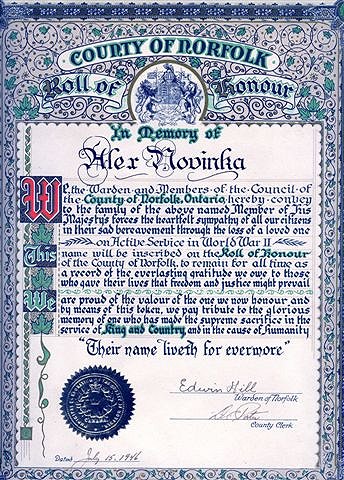 COUNTY OF NORFOLK
Roll of Honour
In Memory of
Alex Novinka
We, the Warden and Members of the Council of
the County of Norfolk, Ontario, hereby convey
to the family of the above named Member of His
Majesty's forces the heartfelt sympathy of all our citizens
in their sad bereavement through the loss of a loved one
on Active Service in World War II
This name will be inscribed on the Roll of Honour
of the County of Norfolk, to remain for all time as
a record of the everlasting gratitude we owe to those
who gave their lives that freedom and justice might prevail
We are proud of the valour of the one we now honour, and
by means of this token, we pay tribute to the glorious
memory of one who has made the supreme sacrifice in the
service of King and Country, and in the cause of Humanity
"Their name liveth for evermore"
Edwin Hill
Warden of Norfolk
County Clerk
Dated July 15, 1946